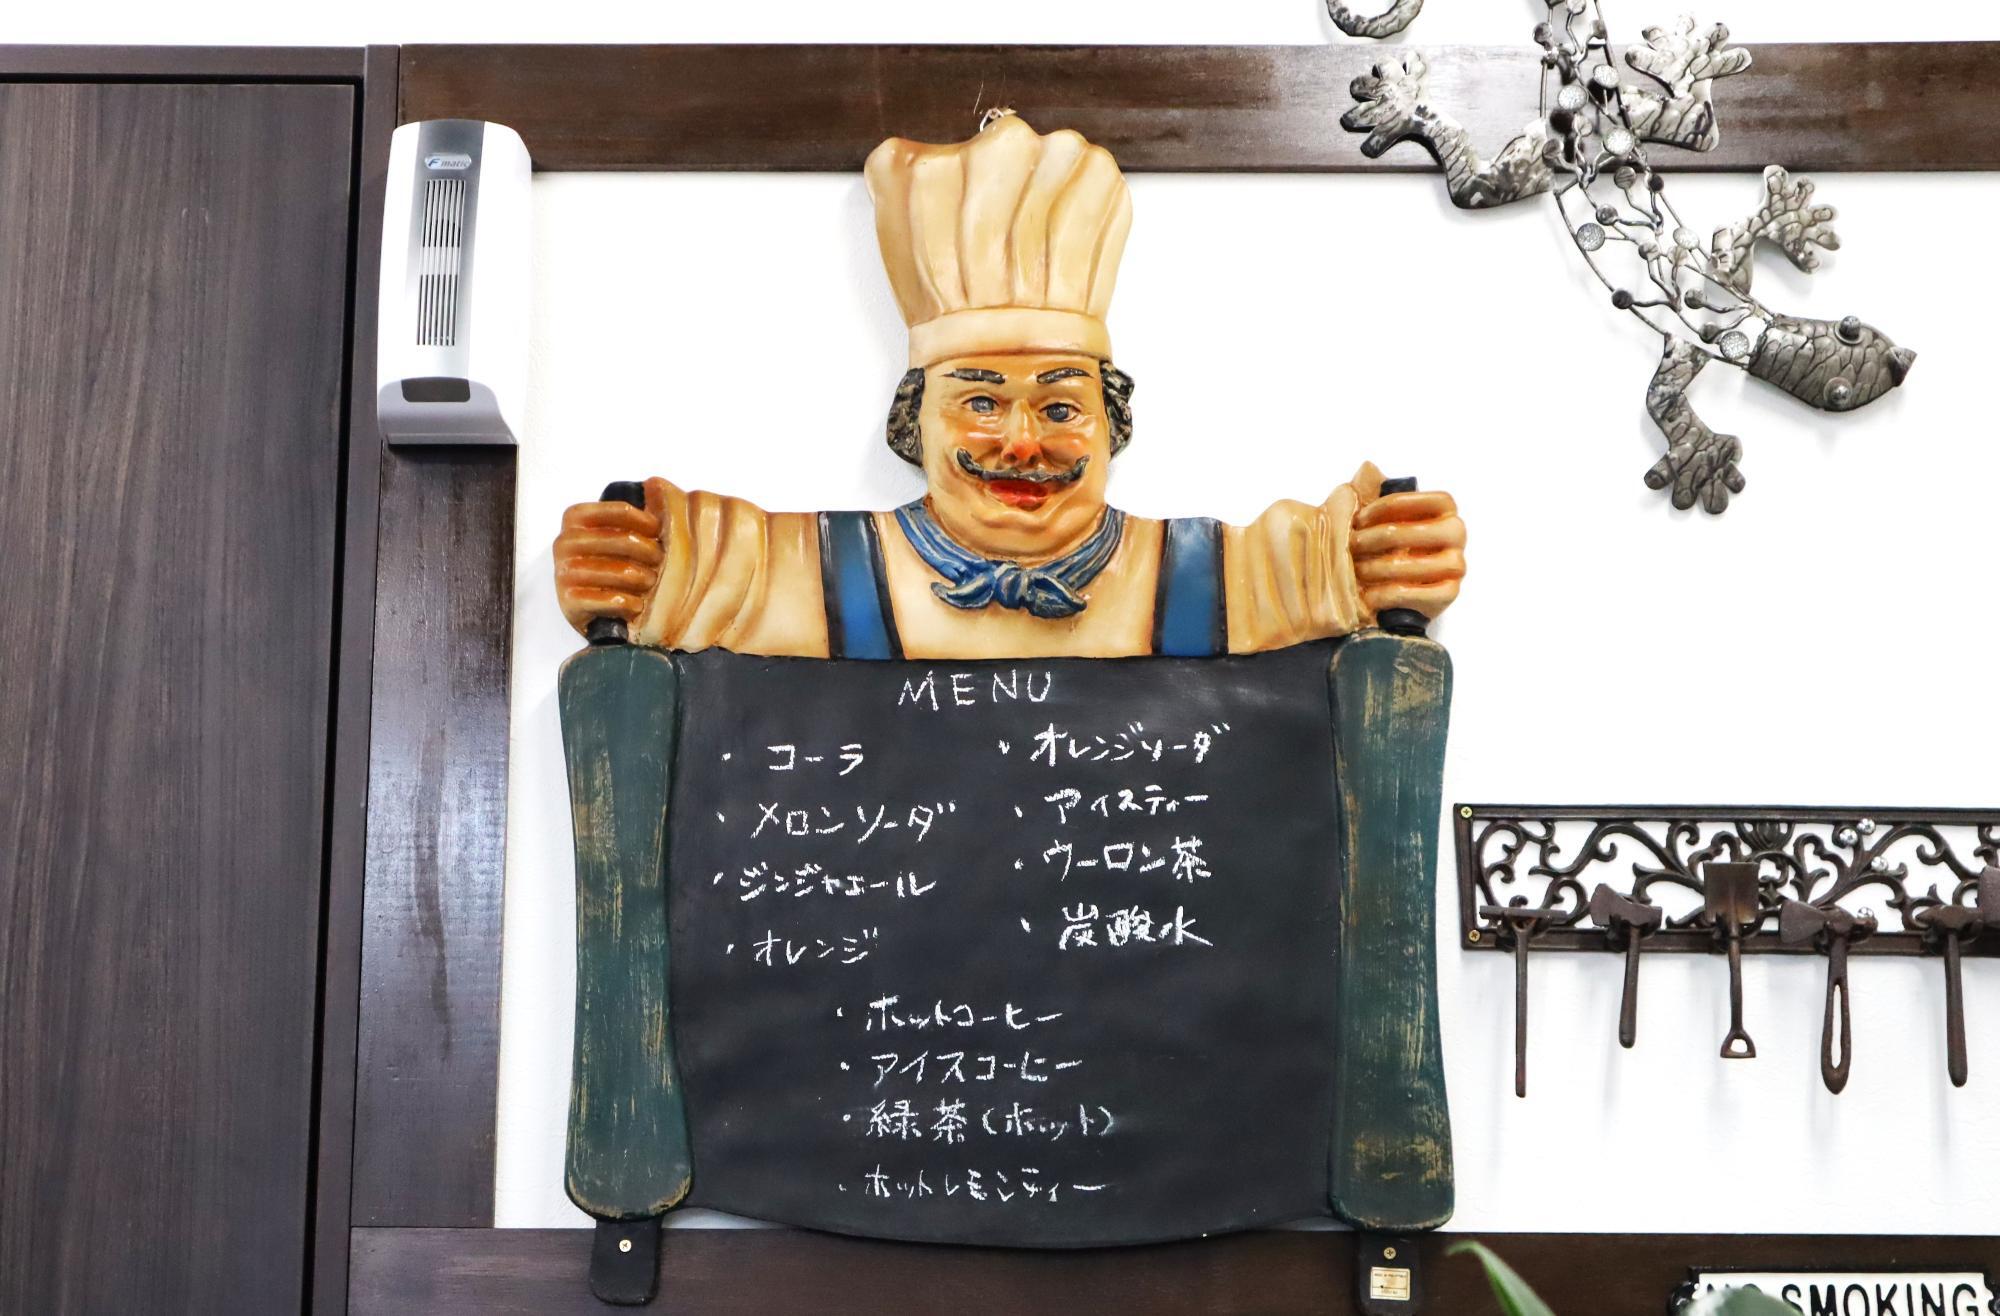 F matic
MENU
・コーラ
・メロンソーダ
・ジンジャエール
・オレンジ
・オレンジソーダ
・アイスティー
・ウーロン茶
・炭酸水
・ホットコーヒー
・アイスコーヒー
・緑茶(ホット)
・ホットレモンティー
NO SMOKING